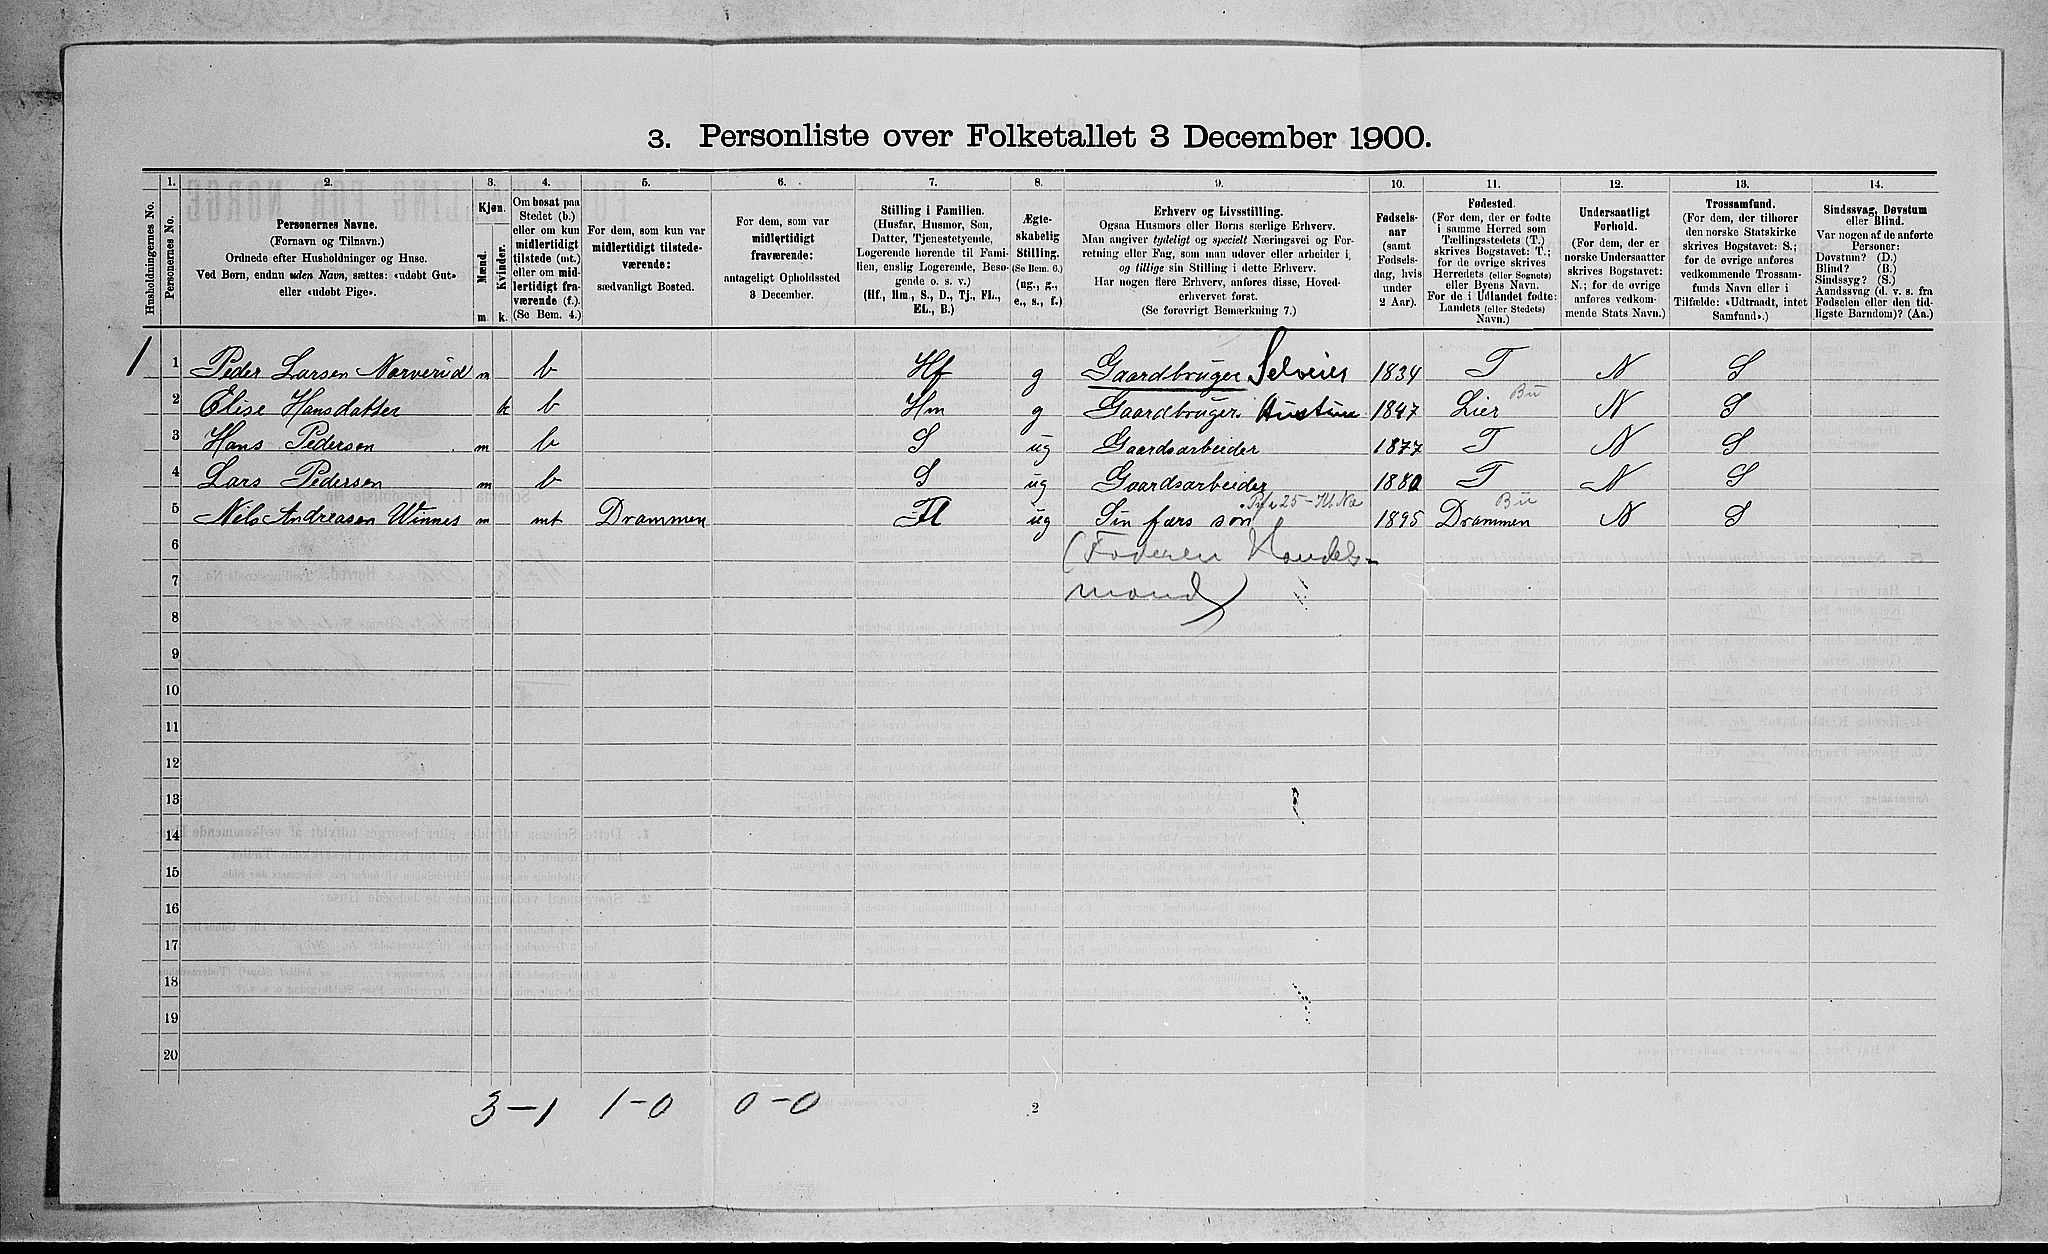 3. Personliste over Folketallet 3 December 1900.
1. 2. 3. 4. 5. 6. 7. 8. 9. 10. 11. 12. 13. 14.
Husholdningernes No.
Personernes No.
Personernes Navne.
(Fornavn og Tilnavn.)
Ordnede efter Husholdninger og Huse.
Ved Børn, endnu uden Navn, sættes: «udøbt Gut»
eller «udøbt Pige».
Kjøn.
Mænd.
Kvinder.
m. k.
Om bosat paa
Stedet (b.)
eller om kun
midlertidigt
tilstede (mt.)
eller om mid-
lertidigt fra-
værende (f.).
(Se Bem. 4.)
For dem, som kun var
midlertidigt tilstede-
værende:
sædvanligt Bosted.
For dem, som var
midlertidigt
fraværende:
antageligt Opholdssted
3 December.
Stilling i Familien.
(Husfar, Husmor, Søn,
Datter, Tjenestetyende,
Logerende hørende til Fami-
lien, enslig Logerende, Besø-
gende o. s. v.)
(Hf., Hm., S., D., Tj., FL.,
EL., B.)
Ægte-
skabelig
Stilling.
(Se Bem. 6.)
(ug., g.,
e., s., f.)
Erhverv og Livsstilling.
Ogsaa Husmors eller Børns særlige Erhverv.
Man angiver tydeligt og specielt Næringsvei og For-
retning eller Fag, som man udøver eller arbeider i,
og tillige sin Stilling i dette Erhverv.
Har nogen flere Erhverv, anføres disse, Hoved-
erhvervet først.
(Se forøvrigt Bemærkning 7.)
Fødsels-
aar
(samt
Fødsels-
dag, hvis
under
2 Aar).
Fødested.
(For dem, der er fødte
i samme Herred som
Tællingsstedets (T.)
skrives Bogstavet: T.;
for de øvrige skrives
Herredets (eller Sognets)
eller Byens Navn.
For de i Udlandet fødte:
Landets (eller Stedets)
Navn.)
Undersaatligt
Forhold.
(For dem, der er
norske Undersaatter
skrives Bogstavet:
N.; for de øvrige
anføres vedkom-
mende Stats Navn.)
Trossamfund.
(For dem, der tilhører
den norske Statskirke
skrives Bogstavet: S.;
for de øvrige anføres
vedkommende Trossam-
funds Navn eller i
Tilfælde: «Udtraadt, intet
Samfund».)
Sindssvag, Døvstum
eller Blind.
Var nogen af de anførte
Personer:
Døvstum? (D.)
Blind? (B.)
Sindssyg? (S.)
Aandssvag (d. v. s. fra
Fødselen eller den tid-
ligste Barndom)? (Aa.)
1 1 Peder Larsen Narverud m b Hf g Gaardbruger Selveier 1834 T N S
2 Elise Hansdatter k b Hm g Gaardbruger Hustru 1847 Lier Bu N S
3 Hans Pedersen m b S ug Gaardsarbeider 1877 T N S
4 Lars Pedersen m b S ug Gaardsarbeider 1880 T N S
5 Nils Andreasen Winnes m mt Drammen Fl ug Sin fars søn 1895 Drammen Bu N S
6 (Faderen Handels-
7 mand)
8
9
10
11
12
13
14
15
16
17
18
19
20
3 – 1 1 – 0 0 – 0 2